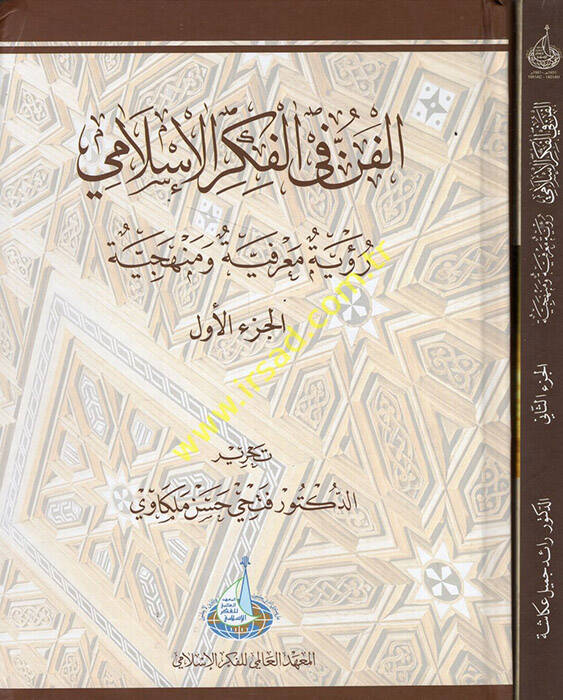 الفن في الفكر الإسلامي
رُؤيَةٌ مَعْرفيَةٌ وَمَنهَجيَّةٌ
الجزء الأول
تحرير
الدكتور فتحي حسن ملكاوي
المعهد العالمي للفكر الإسلامي
www.irsad.com.tr
الفن في الفكر الإسلامي
رؤية معرفية ومنهجية
الجزء الثاني
الدكتور رائد جميل عكاشة